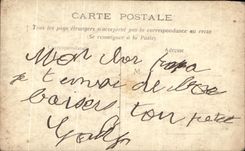 CARTE POSTALE
Tous les pays étrangers n'acceptent pas la correspondance au recto
Se renseigner à la Poste
Mon cher papa
je t'envoi de bon
baisers ton petit